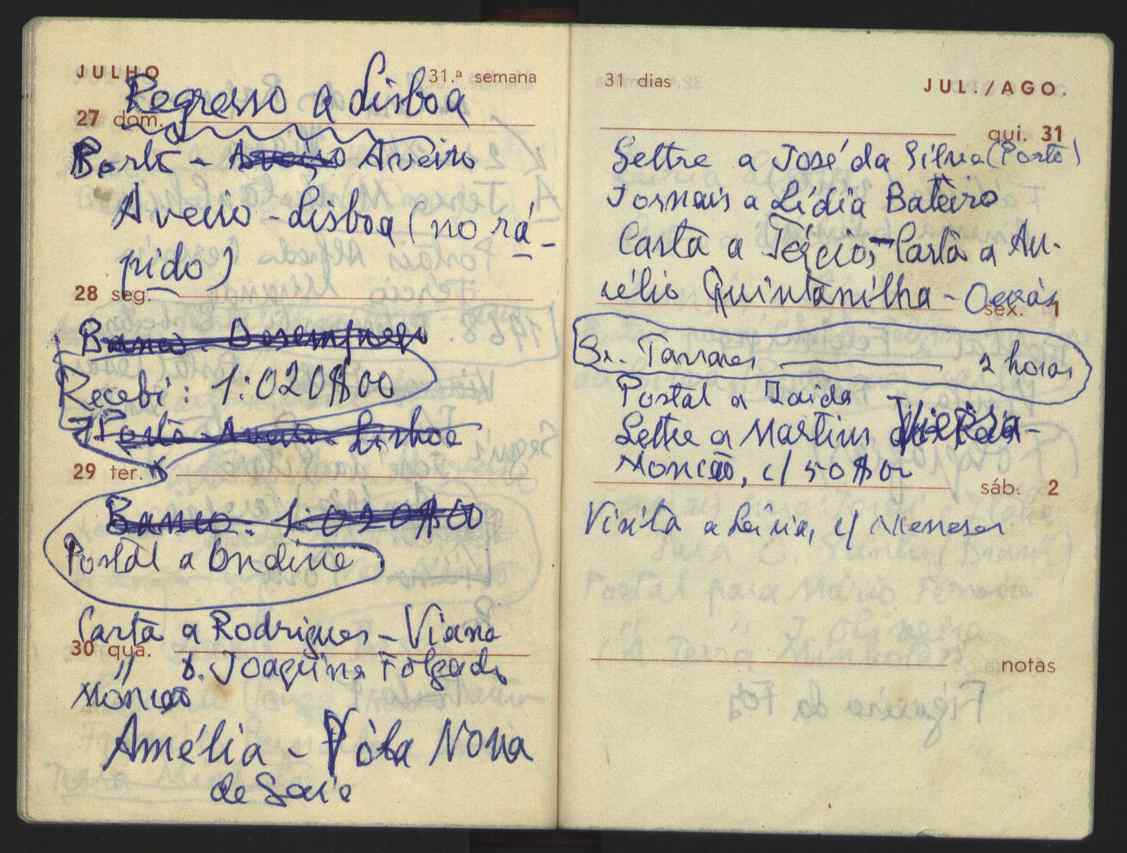 JULHO
31.ª semana
Regresso a Lisboa
27 dom.
Porto - Aveiro Aveiro
Aveiro - Lisboa (no rá-
pido)
28 seg.
Banco - Desempregos
Recebi: 1:020$00
Porto - Aveiro - Lisboa
29 ter.
Banco - 1:020$00
Postal a Ondine
Carta a Rodrigues - Viana
30 qua.
" D. Joaquina Folgado
Monção
Amélia - Vila Nova
de Gaia
31 dias
JUL./AGO.
qui. 31
Lettre a José da Silva (Porto)
Jornais a Lídia Bateiro
Carta a Tércio, Carta a Au-
rélio Quintanilha -
sex. 1
Sr. Tavares 2 horas
Postal a Zaida
Lettre a Martins
Monção, c/ 50$00
sáb. 2
Visita a Leiria, c/ Meneses
notas